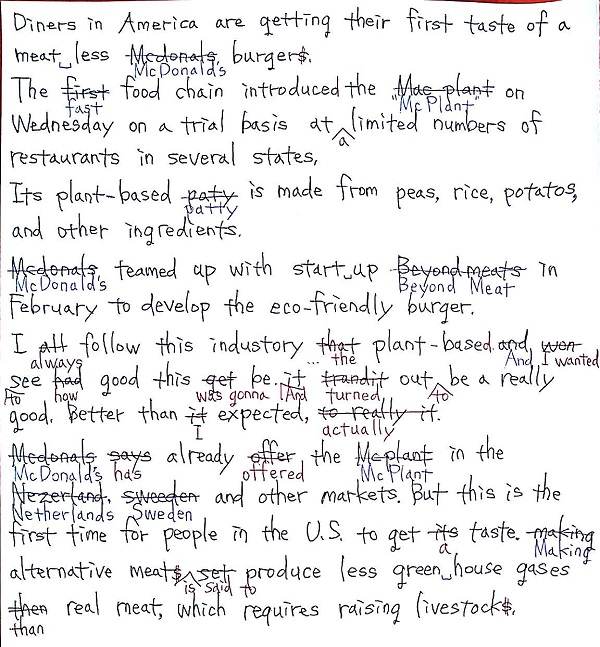 Diners in America are getting their first taste of a
meat less Mcdonals, burgers.
McDonald's
The first food chain introduced the "Mac plant on
fast "McPlant"
Wednesday on a trial basis at limited numbers of
a
restaurants in several states,
Its plant-based paty is made from peas, rice, potatos,
patty
and other ingredients.
Mcdonals, teamed up with start up Beyond meats in
McDonald's Beyond Meat
February to develop the eco-friendly burger.
I all follow this industory that plant-based and, won
always ... the And I wanted
see had good this get be. it trandit out be a really
to how was gonna And turned to
good. Better than it expected, to really it.
I actually
Mcdonals says already offer the Mcplant in the
McDonald's has offered McPlant
Nezerland, sweeden and other markets. But this is the
Netherlands Sweden
first time for people in the U.S. to get its taste. making
a Making
alternative meats set produce less green house gases
is said to
then real meat, which requires raising livestocks.
than